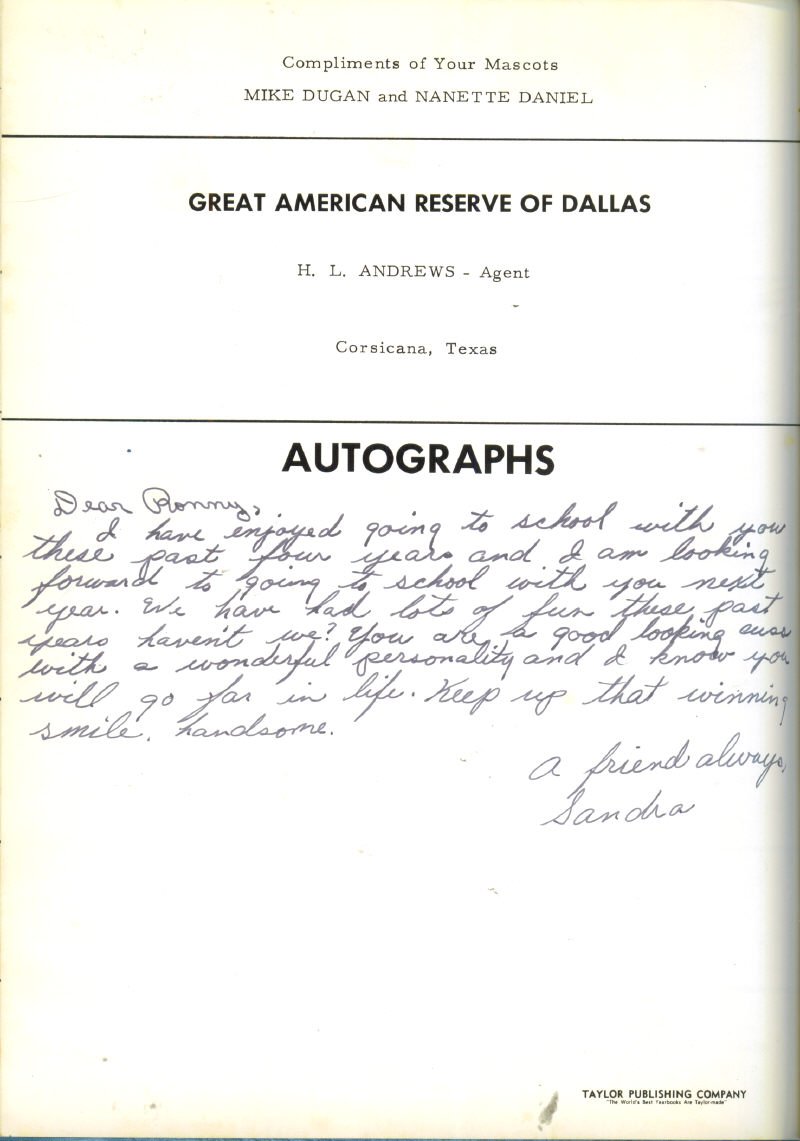 Compliments of Your Mascots
MIKE DUGAN and NANETTE DANIEL
GREAT AMERICAN RESERVE OF DALLAS
H. L. ANDREWS - Agent
Corsicana, Texas
AUTOGRAPHS
Dear Ronny,
I have enjoyed going to school with you
these past four years and I am looking
forward to going to school with you next
year. We have had lots of fun these past
years haven't we? You are a good looking cuss
with a wonderful personality and I know you
will go far in life. Keep up that winning
smile, handsome.
A friend always,
Sandra
TAYLOR PUBLISHING COMPANY
"The World's Best Yearbooks Are Taylor-made"